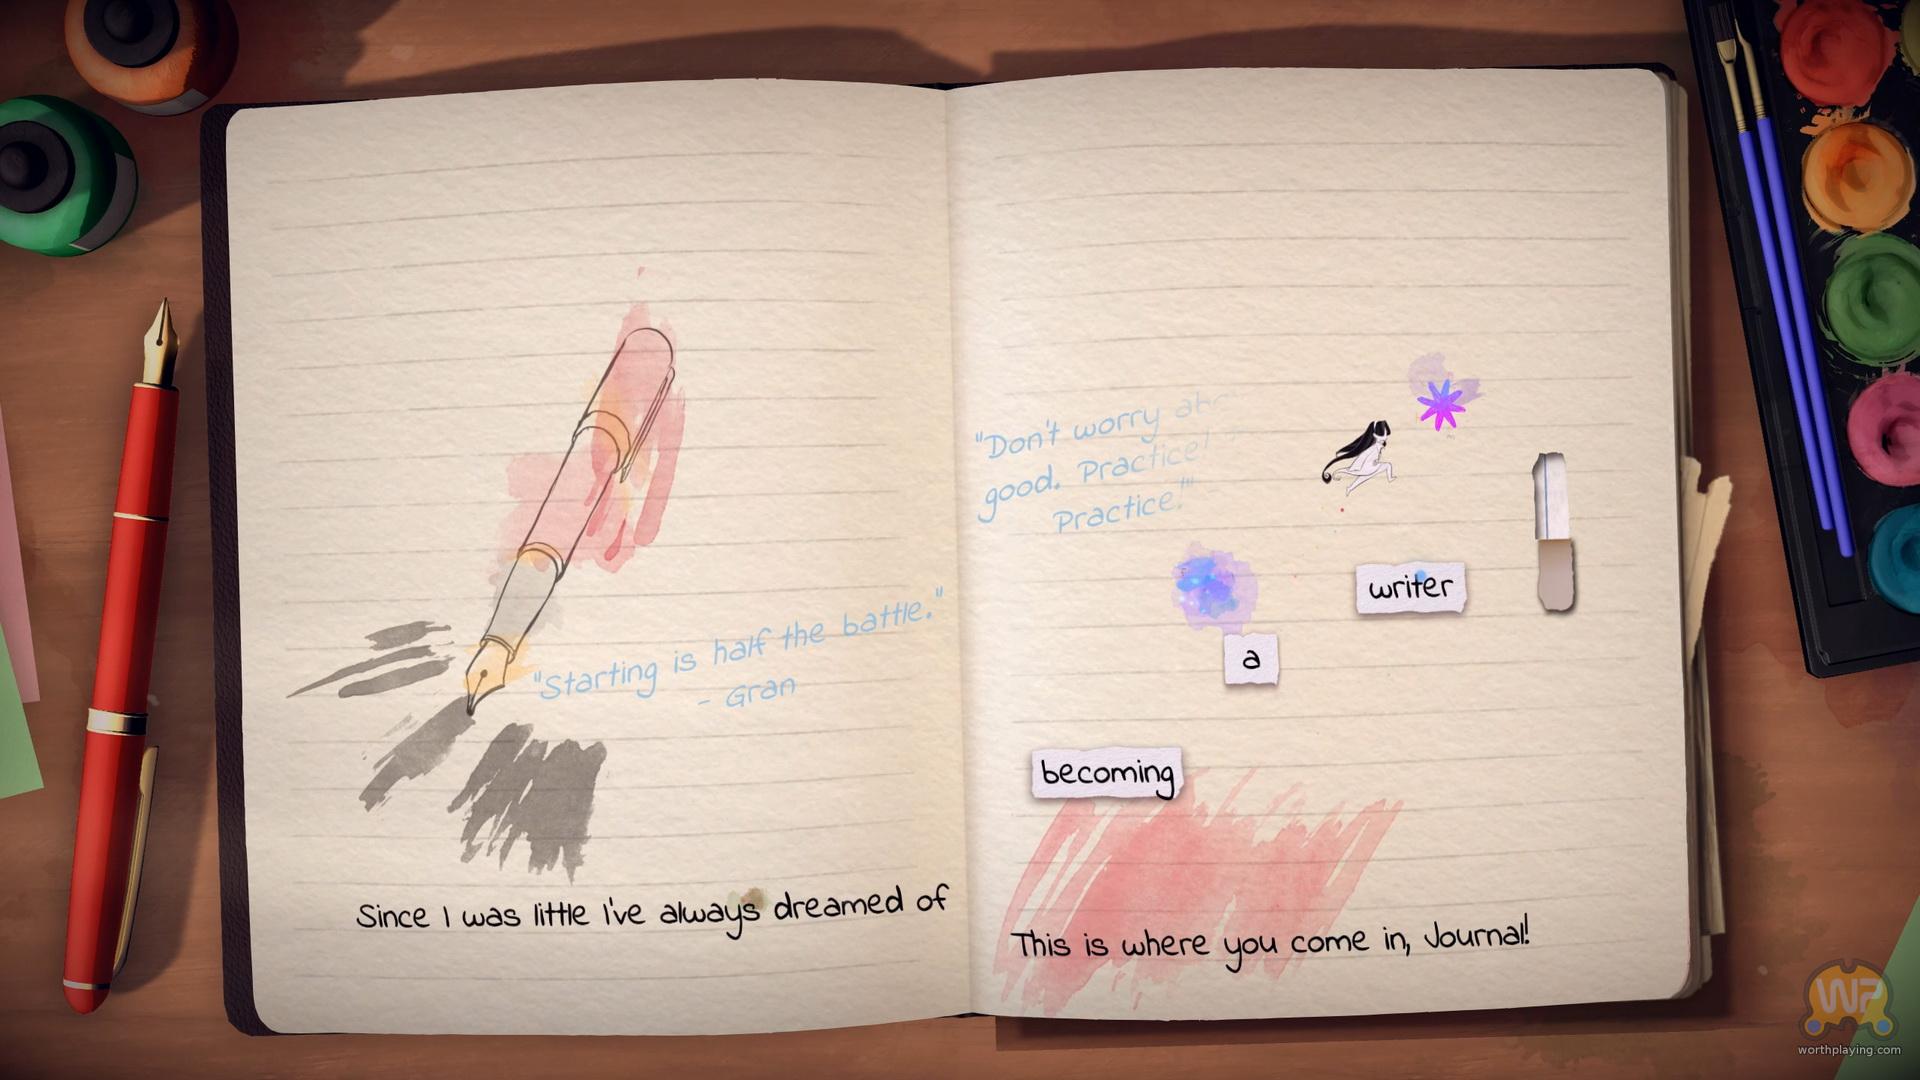 "Starting is half the battle."
- Gran
Since I was little I've always dreamed of
"Don't worry
good. Practice!
Practice!"
writer
a
becoming
This is where you come in, Journal!
WP
worthplaying.com